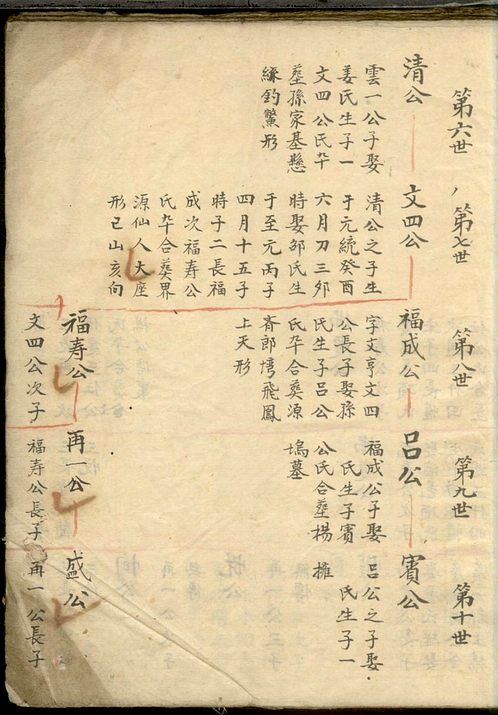 第六世
清公
雲一公子娶
姜氏生子一
文四公氏卒
塟孫家基懸
絲釣鱉形
第七世
文四公
清公之子生
于元統癸酉
六月刀三夘
時娶邹氏生
于至元丙子
四月十五子
時子二長福
成次福寿公
氏卒合葬界
源仙人大座
形巳山亥向
第八世
福成公
字文亨文四
公長子娶孫
氏生子吕公
氏卒合葬源
斉郎塆飛鳳
上天形
福寿公
文四公次子
第九世
吕公
福成公子娶
氏生子賓
公氏合塟楊
塢墓
再一公
福寿公長子
第十世
賓公
吕公之子娶
氏生子一
擁
盛公
再一公長子